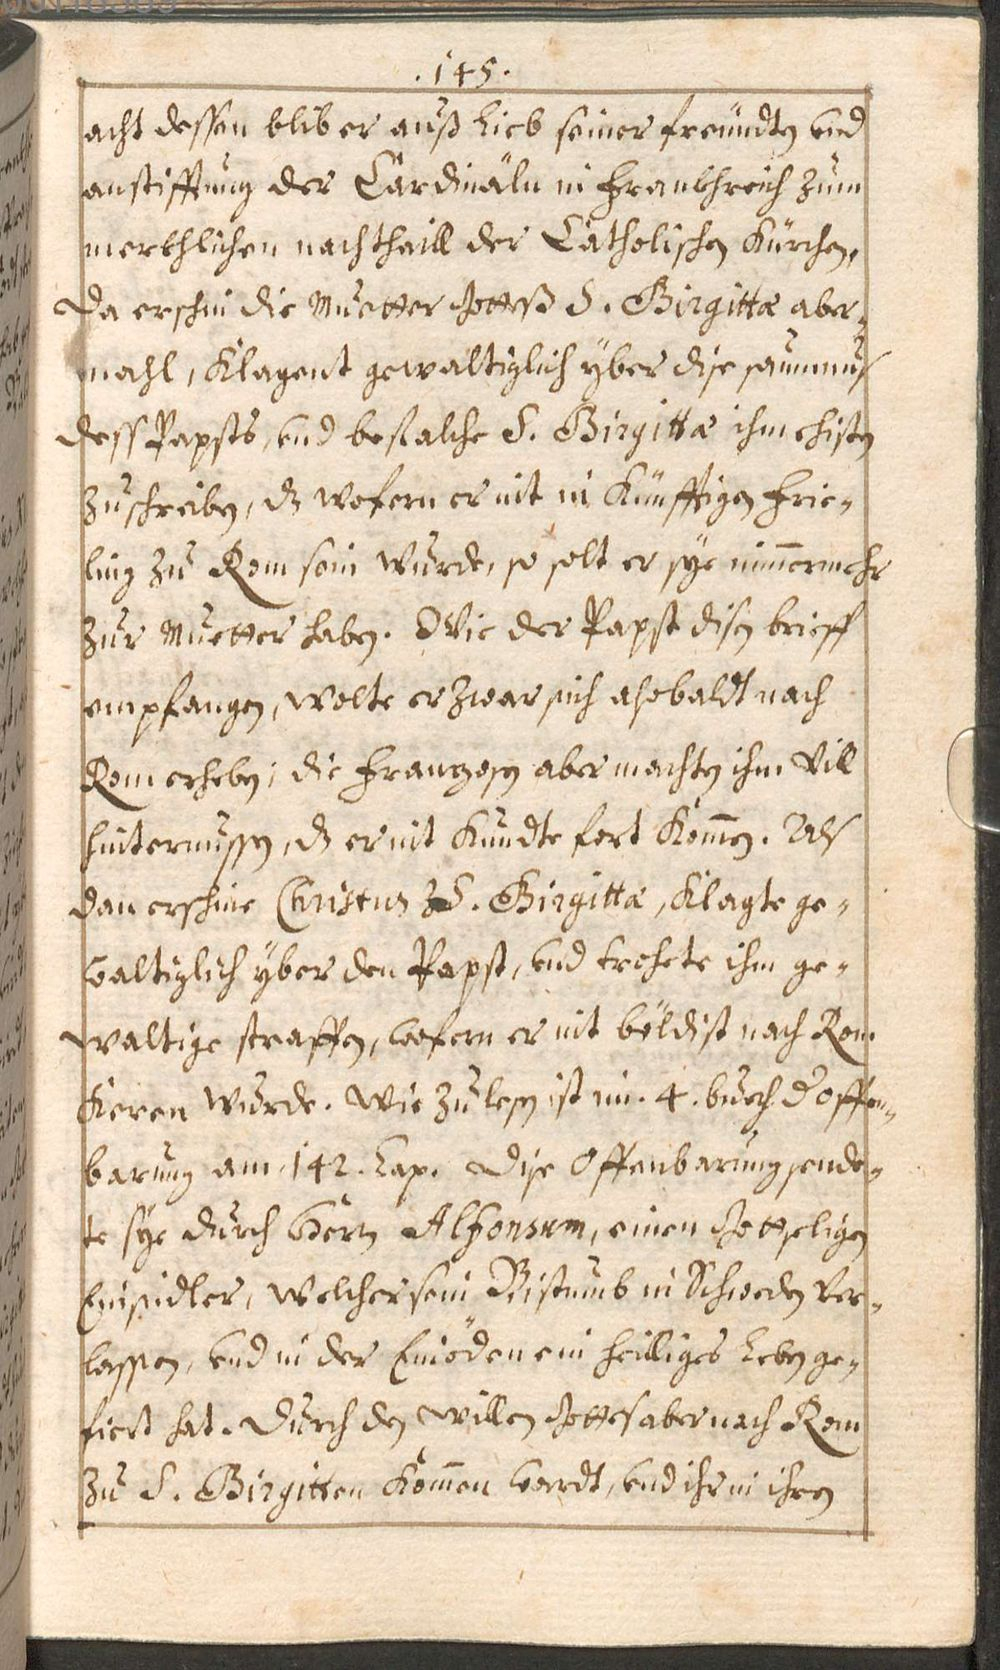 .145.
acht dessen blib er auß Lieb seiner freündten vnd
anstifftung der Cardinäln in Frankhreich zum
merkhlichen nachthaill der Catholischen Kürchen,
Da erschin die Muetter Gotteß S. Birgittæ aber-
mahl, Klagent gewaltiglich yber dise saumnus
dess Papsts, vnd befalche S. Birgittæ ihme
zuschreiben, dz wofern er nit in Künfftigen Frie-
ling zu Rom sein wurde, so solt er sye nim̅ermehr
zur Muetter haben. Wie der Papst disen brieff
empfangen, wolte er zwar sich alsobaldt nach
Rom erheben; die Franzosen aber machten ihm Vill
hinternussen, dz er nit Kundte fort Kom̅en. Als
dan erschine Christus S. Birgittæ, Klagte ge-
waltiglich yber den Papst, vnd trohete ihm ge-
waltige straffen, wofern er nit böldist nach Rom
Keren wurde. Wie zu lesen ist im. 4. buech d' offen-
barung am 142. Cap. Dise Offenbarung sende-
te sye durch Herrn Alfonsum, einen Gottseligen
Einsidler, welcher sein Bistumb in Schweden ver-
lassen, vnd in der Einöden ein heilliges Leben ge-
fiert hat. Durch den willen Gottes aber nach Rom
zu S. Birgitten Kom̅en wardt, vnd ihr in ihren